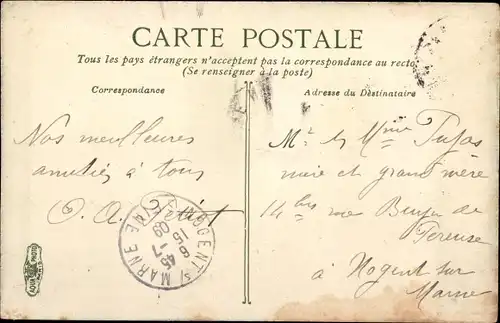 CARTE POSTALE
Tous les pays étrangers n'acceptent pas la correspondance au recto
(Se renseigner à la poste)
Correspondance
Adresse du Destinataire
Nos meilleures
amitiés à tous
Mr. et Mme Pujos
mère et grand mère
14 bis rue
à Nogent sur
Marne
NOGENT S/ MARNE